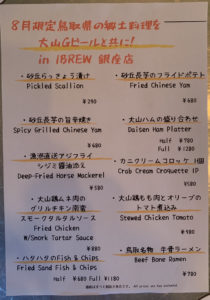 8月限定鳥取県の郷土料理を
大山Gビールと共に!
in IBREW 銀座店
・砂丘らっきょう漬け
Pickled Scallion
¥290
・砂丘長芋のフライドポテト
Fried Chinese Yam
¥680
・砂丘長芋の旨辛焼き
Spicy Grilled Chinese Yam
¥680
・大山ハムの盛り合わせ
Daisen Ham Platter
Half ¥780
Full ¥1480
・漁港直送アジフライ
シジミ醤油添え
Deep-Fried Horse Mackerel
¥580
・カニクリームコロッケ 1個
Crab Cream Croquette 1P
¥380
・大山鶏ムネ肉の
グリルチキン南蛮
スモークタルタルソース
Fried Chicken
W/Smork Tartar Sauce
¥880
・大山鶏もも肉とオリーブの
トマト煮込み
Stewed Chicken Tomato
¥980
・ハタハタのFish & Chips
Fried Sand Fish & Chips
Half ¥680 Full ¥1180
・鳥取名物 牛骨ラーメン
Beef Bone Ramen
¥780